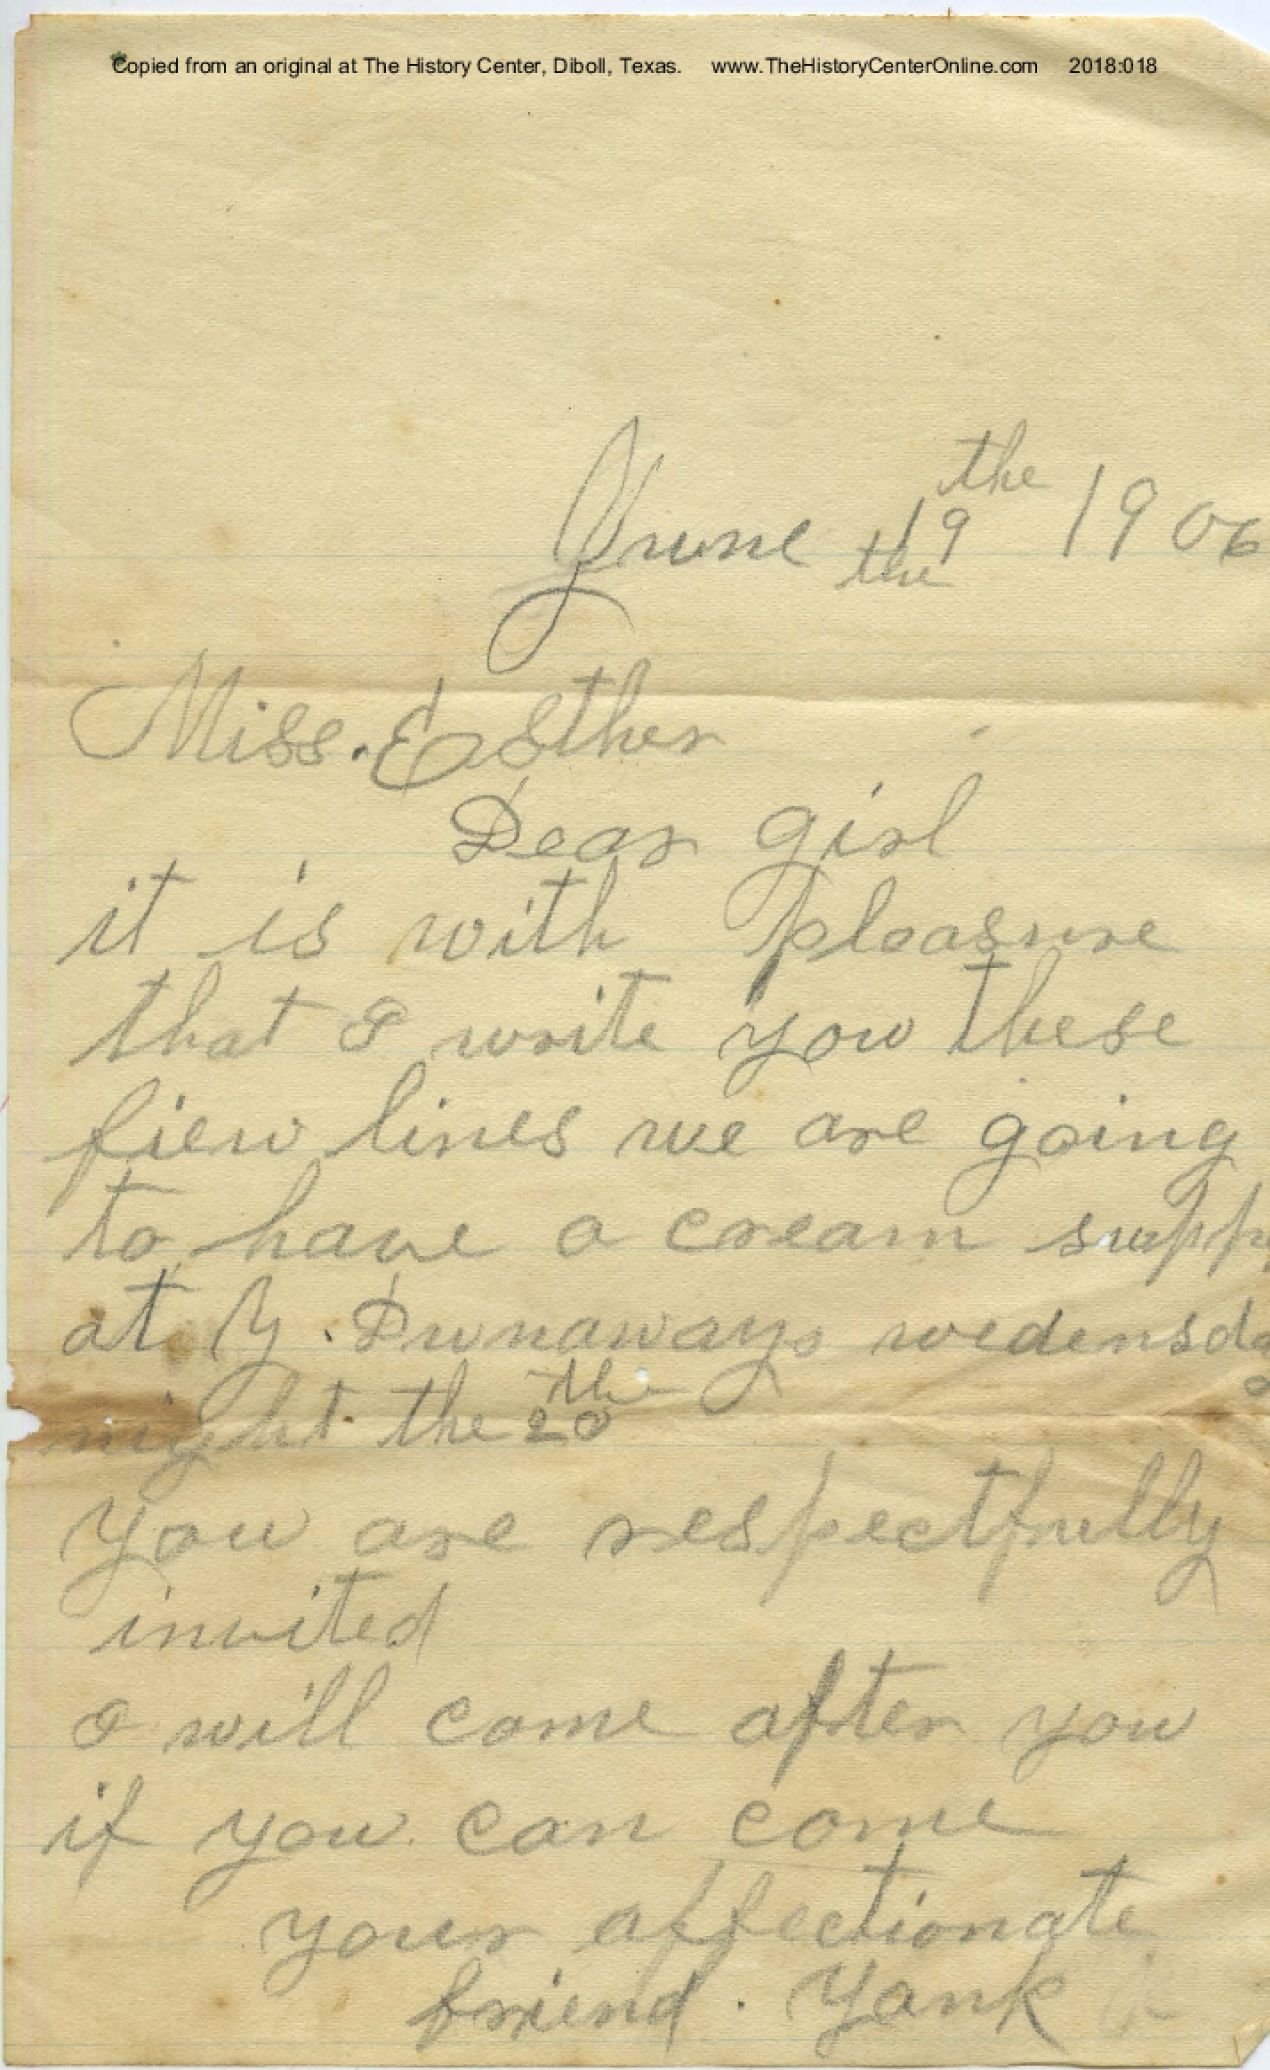 Copied from an original at The History Center, Diboll, Texas. www.TheHistoryCenterOnline.com 2018:018
June the 19 the 1906
Miss. Esther
Dear girl
it is with pleasure
that I write you these
fiew lines we are going
to have a cream supp
at Y. Dunaways wedensda
night the 20th
you are respectfully
invited
I will come after you
if you can come
your affectionate
friend. Yank